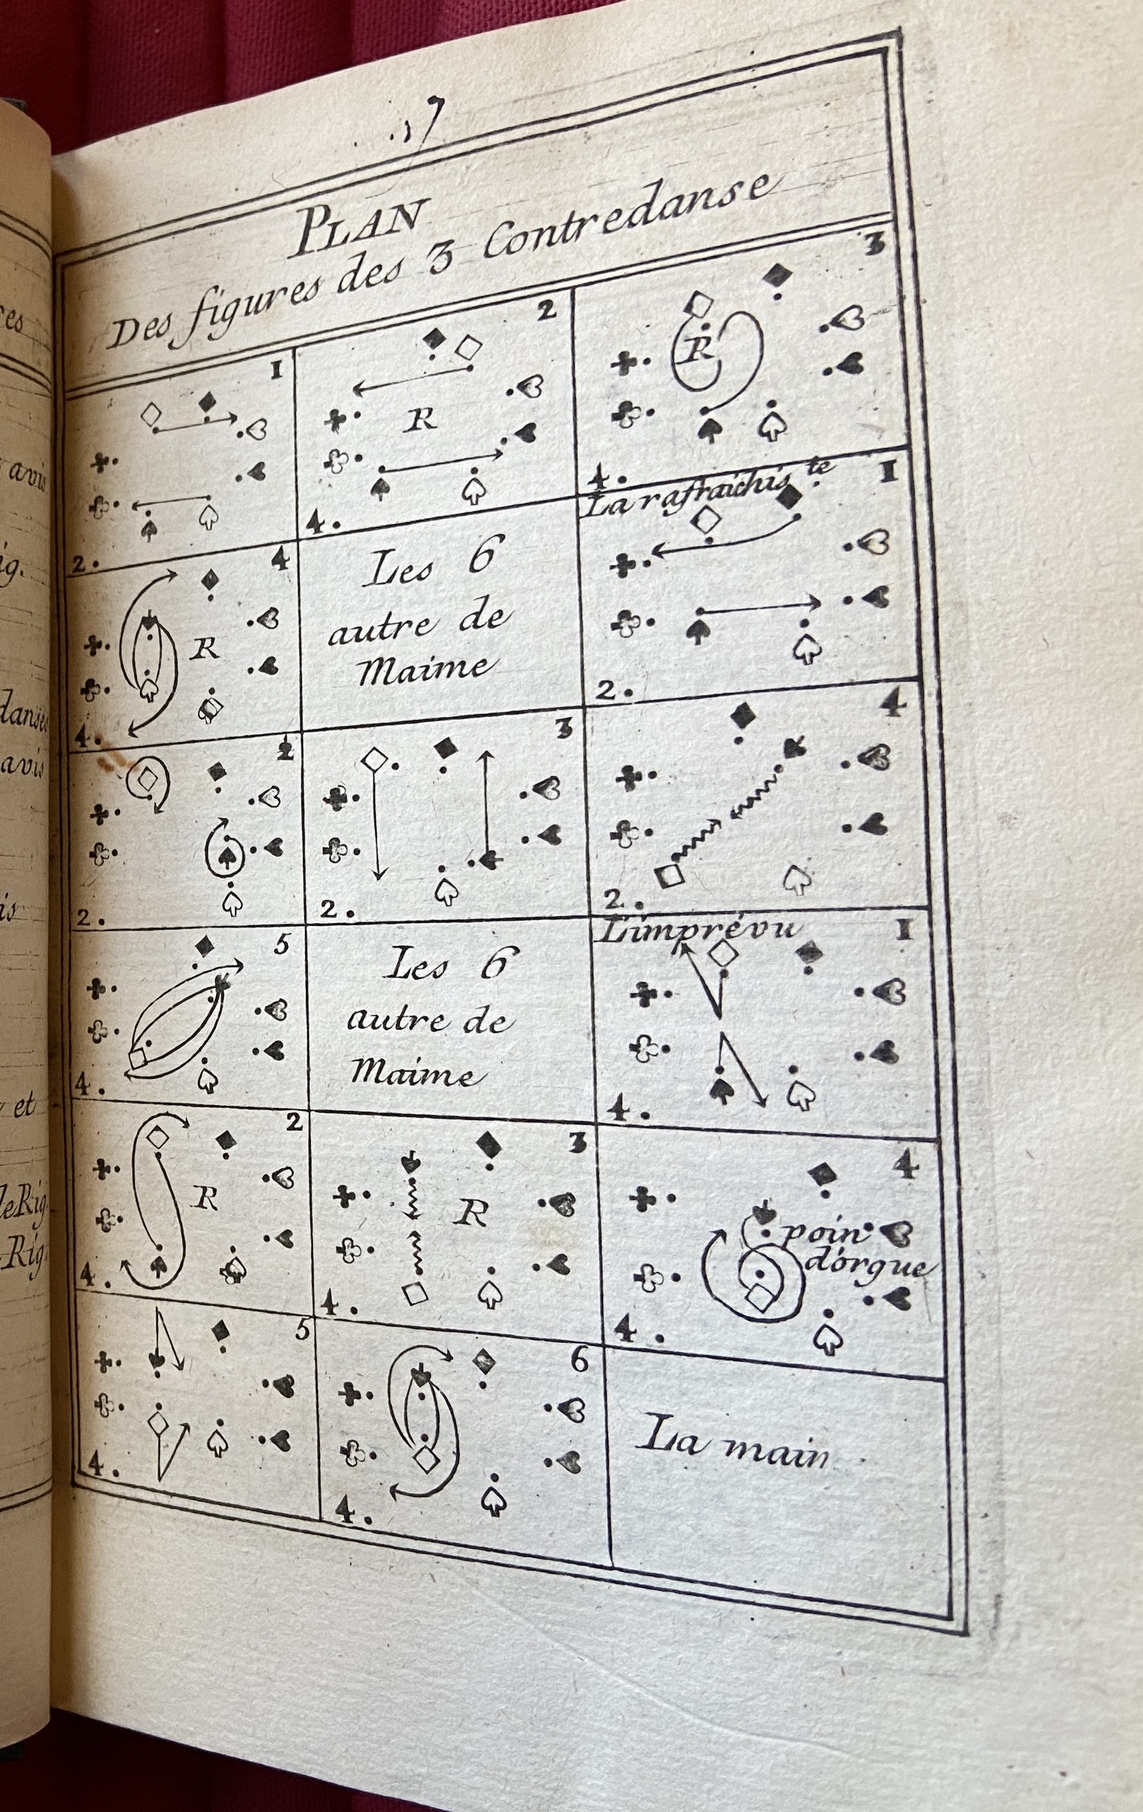 37
PLAN
Des figures des 3 Contredanse
1
2.
2
R
4.
3
R
4.
4
R
4.
Les 6
autre de
Maime
La rafraichis te
1
2.
2
2.
3
2.
4
2.
5
4.
Les 6
autre de
Maime
L'imprévu
1
4.
2
R
4.
3
R
4.
4
poin
d'orgue
4.
5
4.
6
4.
La main
res
avis
ig.
danse
avis
is
et
leRig
Rig